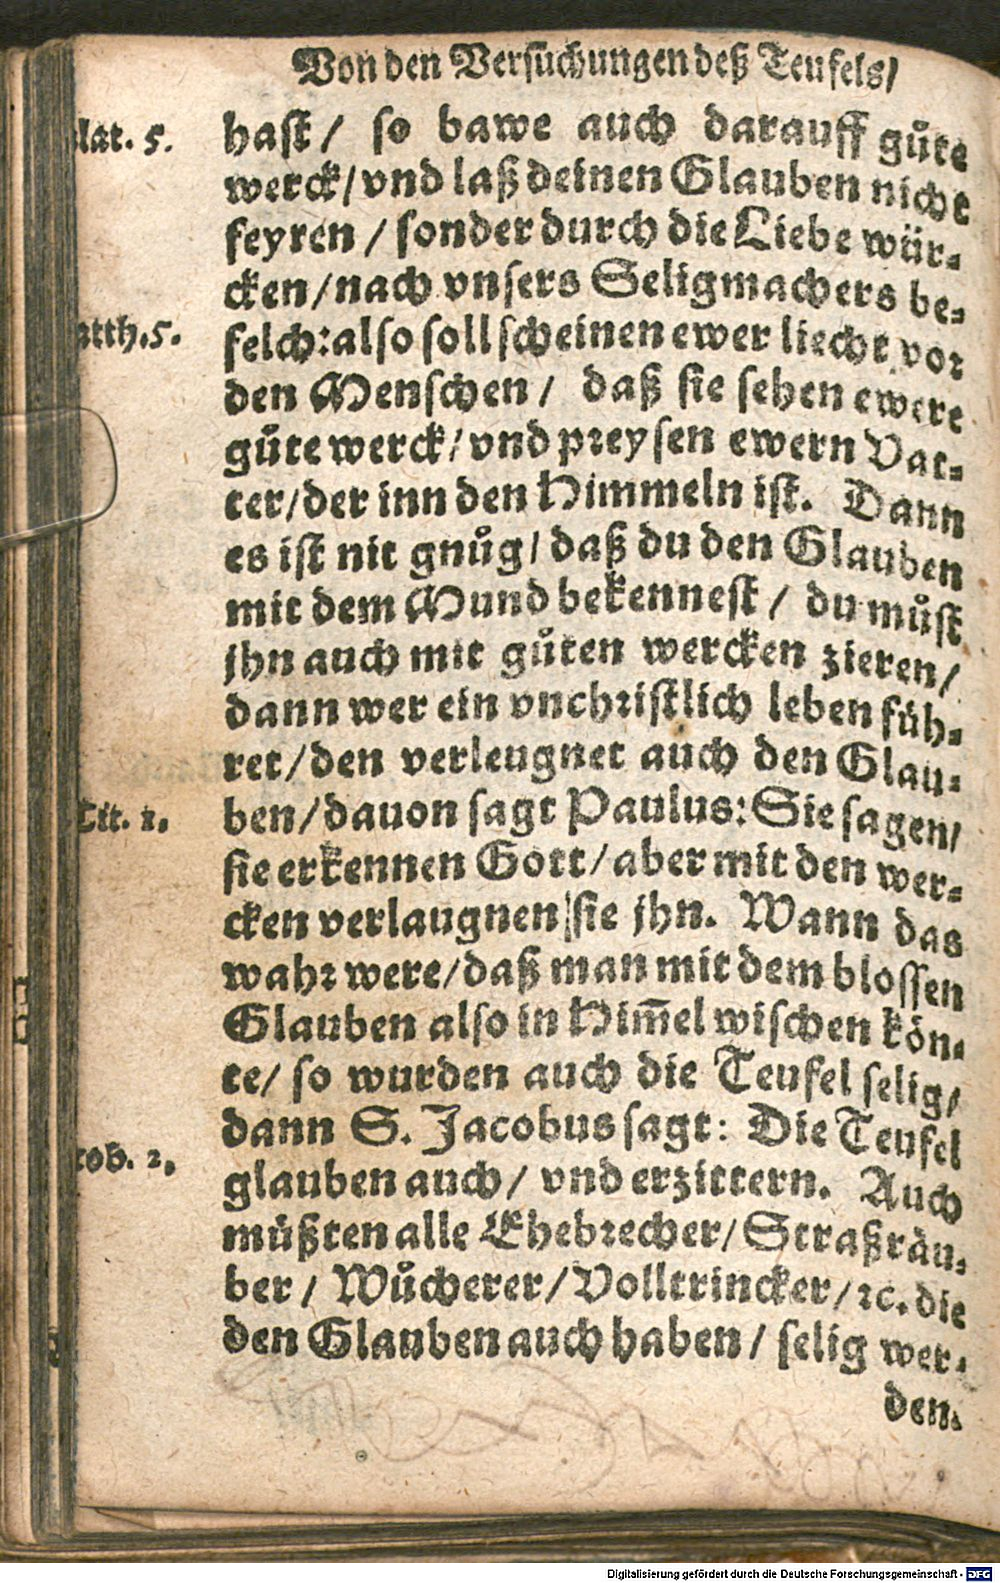 Von den Versuchungen deß Teufels/
lat. 5.
hast/ so bawe auch darauff gůte
werck/ vnd laß deinen Glauben nicht
feyren / sonder durch die Liebe wür-
cken/ nach vnsers Seligmachers be-
atth. 5.
felch: also soll scheinen ewer liecht vor
den Menschen/ daß sie sehen ewere
gůte werck/ vnd preysen ewern Vat-
ter/ der inn den Himmeln ist. Dann
es ist nit gnůg/ daß du den Glauben
mit dem Mund bekennest / du můst
jhn auch mit gůten wercken zieren/
dann wer ein vnchristlich leben füh-
ret/ den verleugnet auch den Glau-
Tit. 1.
ben/ dauon sagt Paulus: Sie sagen/
sie erkennen Gott/ aber mit den wer-
cken verlaugnen sie jhn. Wann das
wahr were/ daß man mit dem blossen
Glauben also in Him̃el wischen kön-
te/ so wurden auch die Teufel selig/
dann S. Jacobus sagt: Die Teufel
cob. 2.
glauben auch/ vnd erzittern. Auch
müßten alle Ehebrecher/ Straßräu-
ber/ Wůcherer/ Volltrincker/ ꝛc. die
den Glauben auch haben/ selig wer-
den.
Digitalisierung gefördert durch die Deutsche Forschungsgemeinschaft - DFG